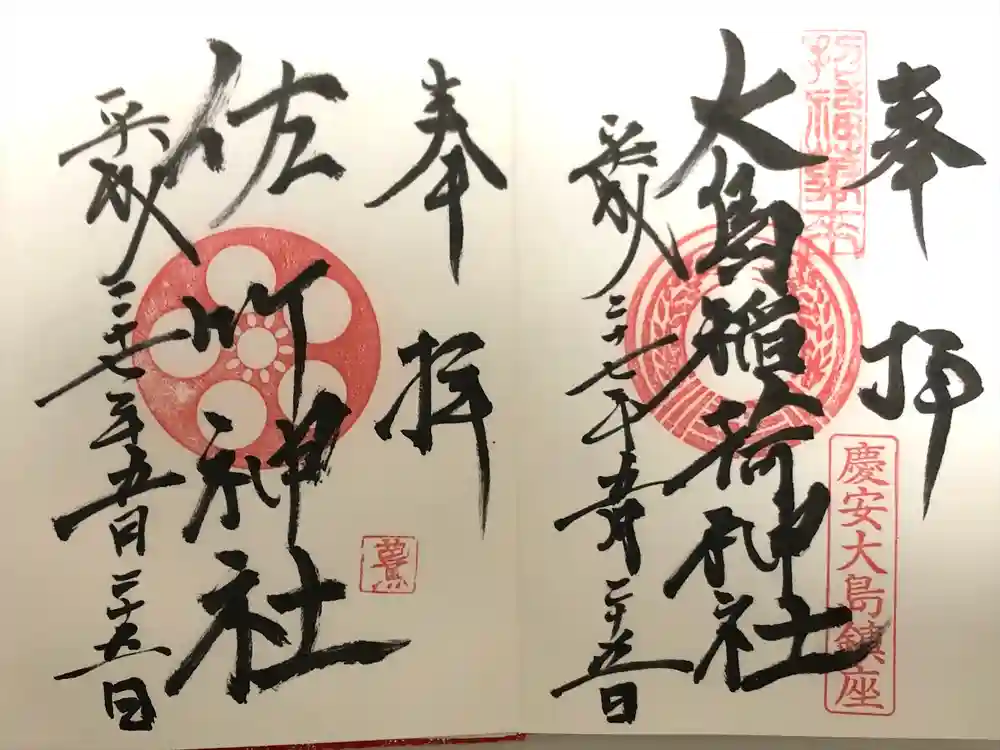 奉拝
大島稲荷神社
平成二十七年五月二十五日
慶安大島鎮座
奉拝
佐竹神社
平成二十七年五月二十五日
鷽